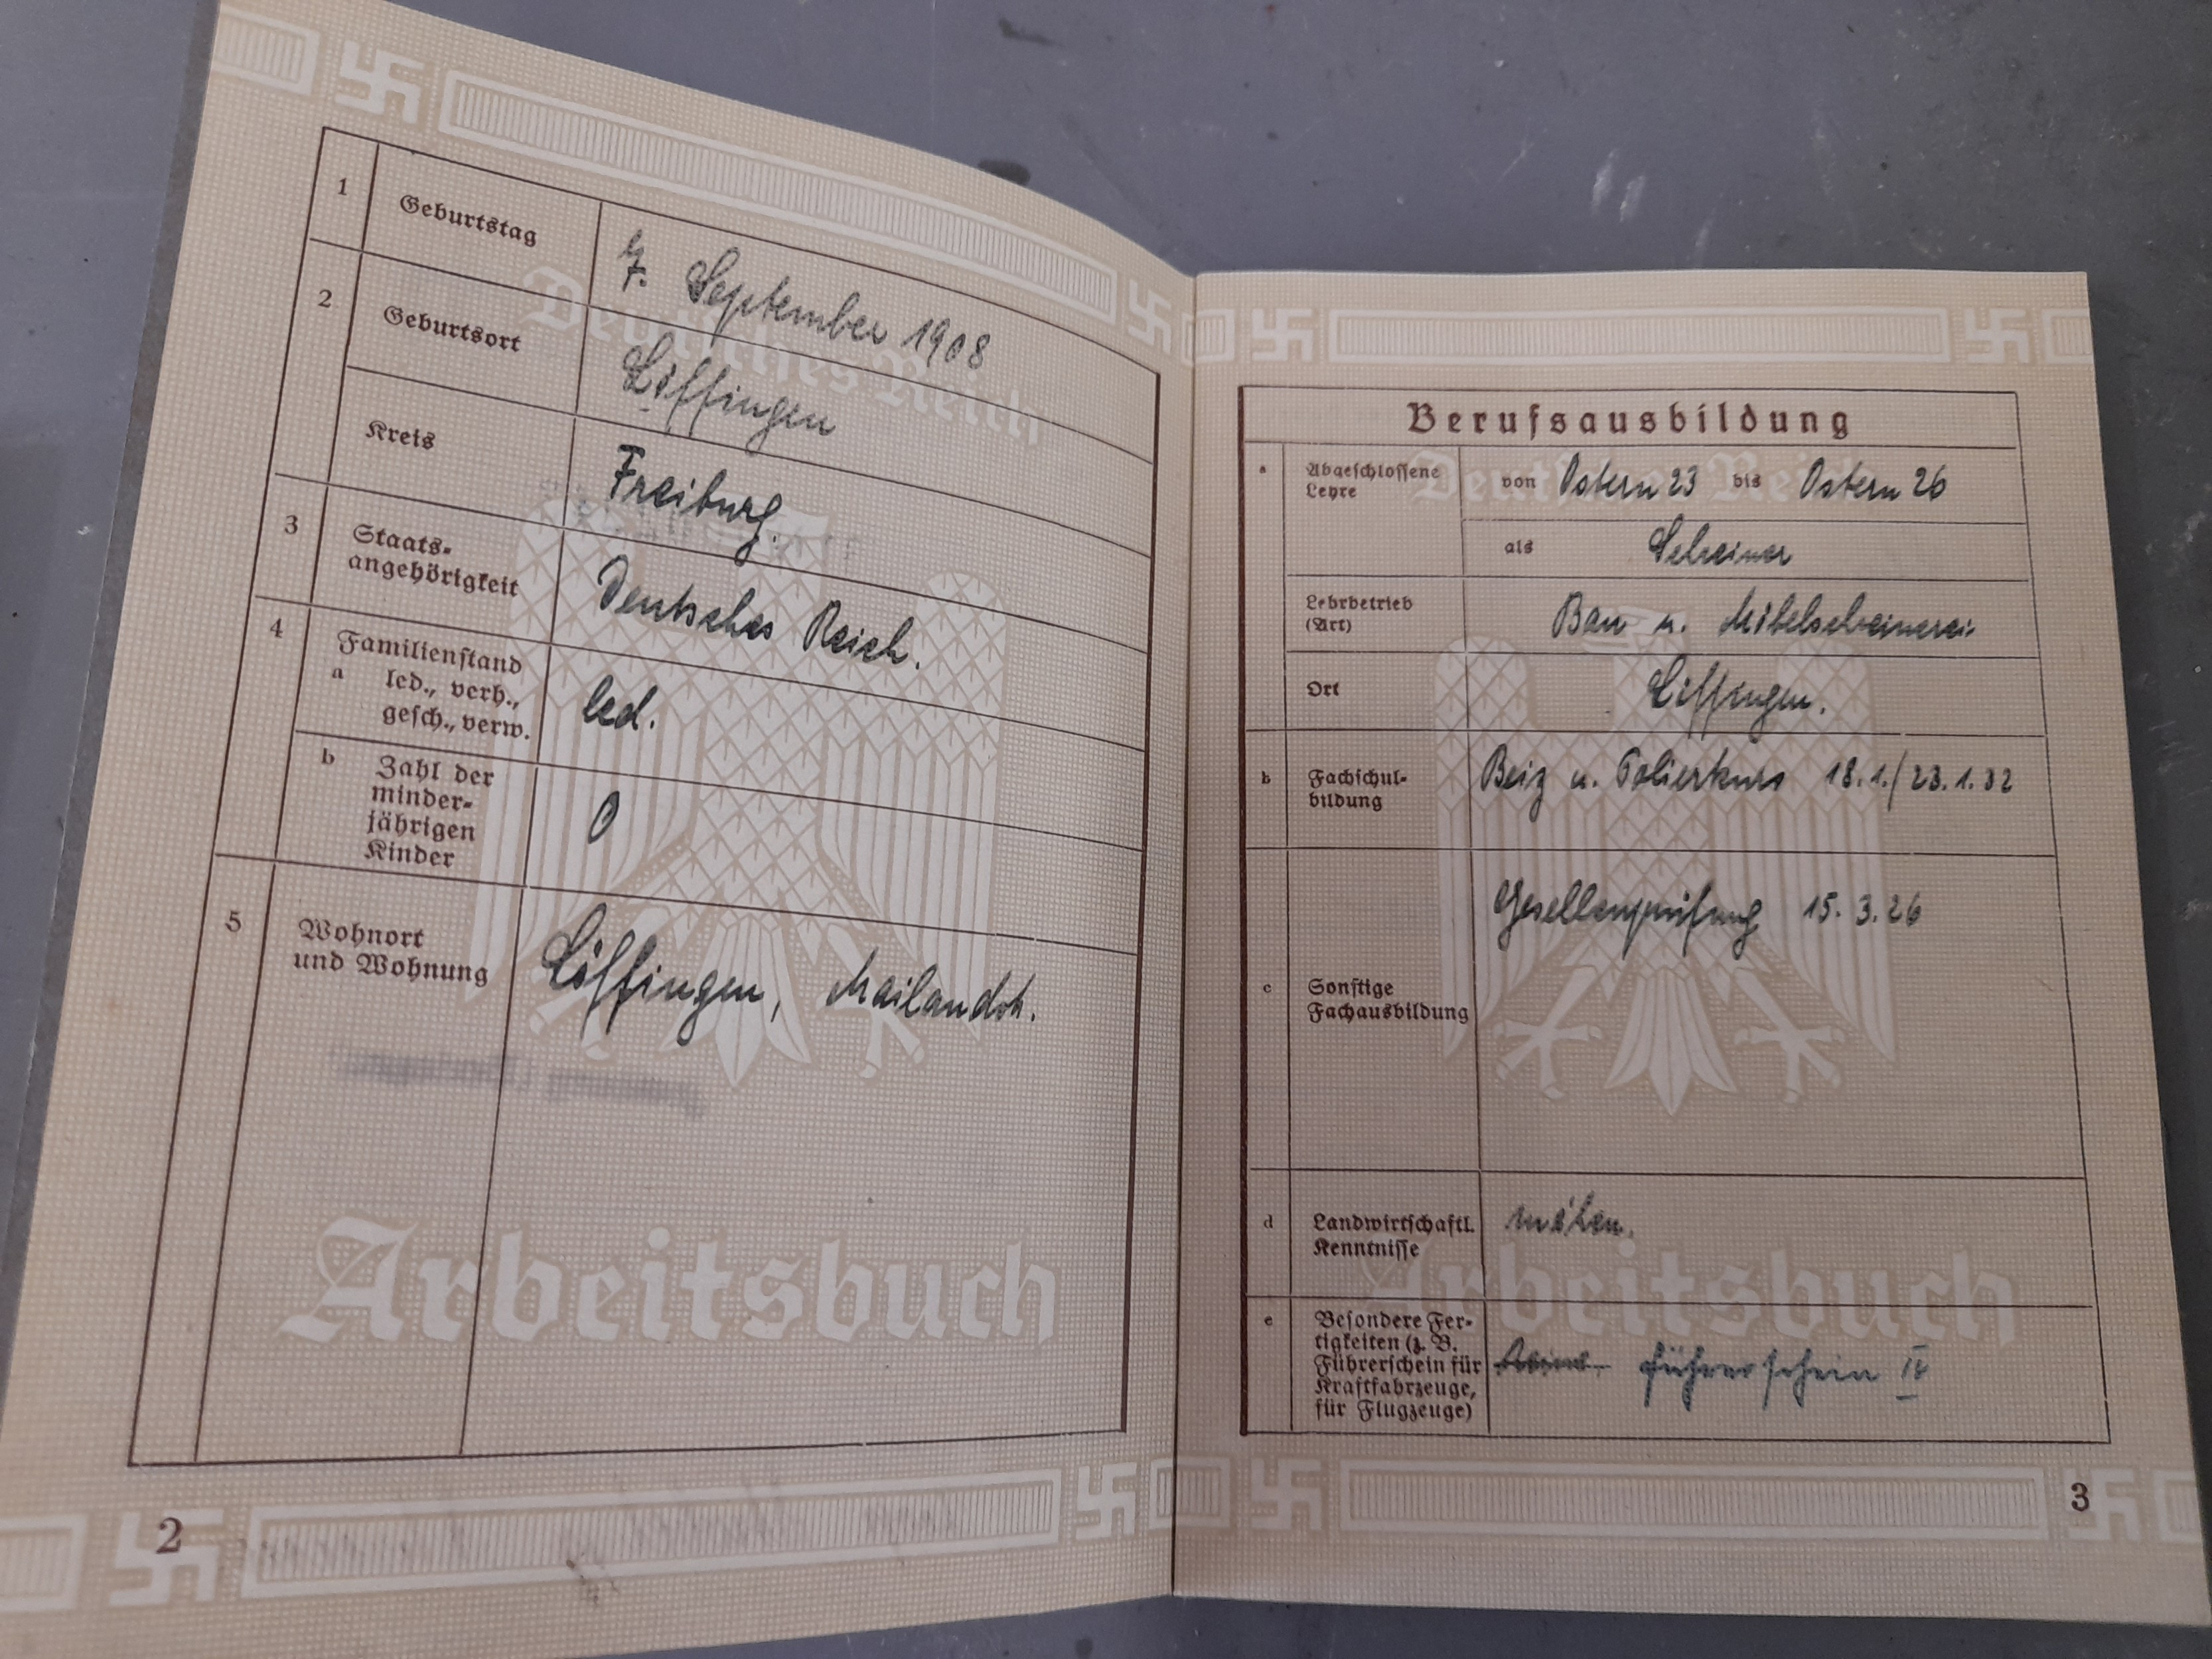 1 Geburtstag 7. September 1908
2 Geburtsort Löffingen
Kreis Freiburg.
3 Staats-
angehörigkeit Deutsches Reich.
4 Familienstand
a led., verh.,
gesch., verw. led.
b Zahl der
minder-
jährigen
Kinder 0
5 Wohnort
und Wohnung Löffingen, Mailandstr.
Deutsches Reich
Arbeitsbuch
2
Berufsausbildung
a Abgeschlossene
Lehre von Ostern 23 bis Ostern 26
als Schreiner
Lehrbetrieb
(Art) Bau u. Möbelschreinerei
Ort Löffingen.
b Fachschul-
bildung Beiz u. Polierkurs 18.1./23.1.32
Gesellenprüfung 15.3.26
c Sonstige
Fachausbildung
d Landwirtschaftl.
Kenntnisse mähen.
e Besondere Fer-
tigkeiten (z. B.
Führerschein für
Kraftfahrzeuge,
für Flugzeuge) Führerschein IV
Deutsches Reich
Arbeitsbuch
3